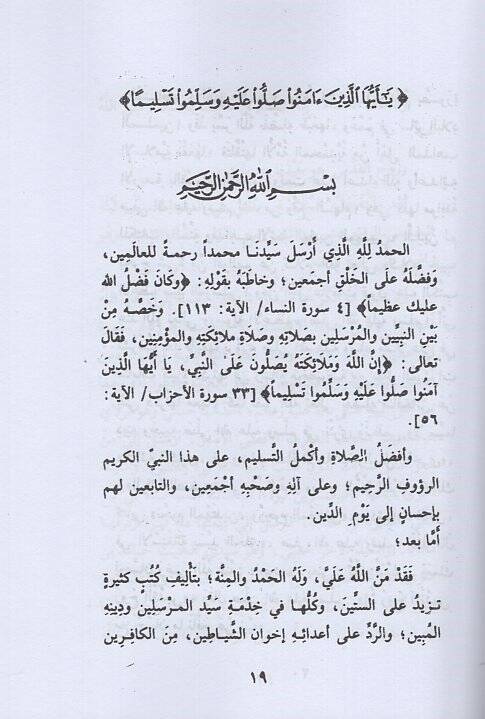 ﴿ يَـٰٓأَيُّهَا ٱلَّذِينَ ءَامَنُوا۟ صَلُّوا۟ عَلَيْهِ وَسَلِّمُوا۟ تَسْلِيمًا ﴾
بِسْمِ ٱللَّهِ ٱلرَّحْمَٰنِ ٱلرَّحِيمِ
الحمدُ لِلَّهِ الَّذِي أَرْسَلَ سَيِّدَنَا محمداً رحمةً للعالَمِين،
وَفضَّلَهُ علَى الخَلْقِ أجمَعين؛ وخاطَبَهُ بقَوْلِهِ: ﴿وكَانَ فَضْلُ الله
عليك عظيماً﴾ [٤ سورة النساء/ الآية: ١١٣]. وَخَصَّهُ مِنْ
بَيْنِ النَّبِيِّين والمُرْسَلِين بصَلاتِهِ وصَلَاةِ ملائِكتِهِ والمؤْمِنِين، فقَالَ
تعالى: ﴿إنَّ اللَّهَ وَمَلَائِكَتَهُ يُصَلُّونَ عَلَى النَّبِيِّ، يَا أَيُّهَا الَّذِينَ
آمَنُوا صَلُّوا عَلَيْهِ وَسَلِّمُوا تَسْلِيماً﴾ [٣٣ سورة الأحزاب/ الآية:
٥٦].
وأفضَلُ الصَّلاةِ وأكملُ التَّسليم، على هذا النبيّ الكريم
الرؤوفِ الرَّحِيم؛ وعلى آلِهِ وصَحْبِهِ أجْمَعِين، والتابعين لهم
بإحسانٍ إلى يَوْمِ الدِّين.
أَمَّا بعد؛
فَقَدْ مَنَّ اللَّهُ علَيَّ، وَلَهُ الحَمْدُ والمِنَّة؛ بتأليفِ كُتُبٍ كثيرةٍ
تزيدُ على الستِّينَ، وكُلُّها في خِدْمَةِ سَيِّدِ المـرْسَلِين ودِينِهِ
المُبِين؛ والرَّدِّ على أعدائِهِ إخوان الشَّياطين، مِنَ الكافِرِين
١٩